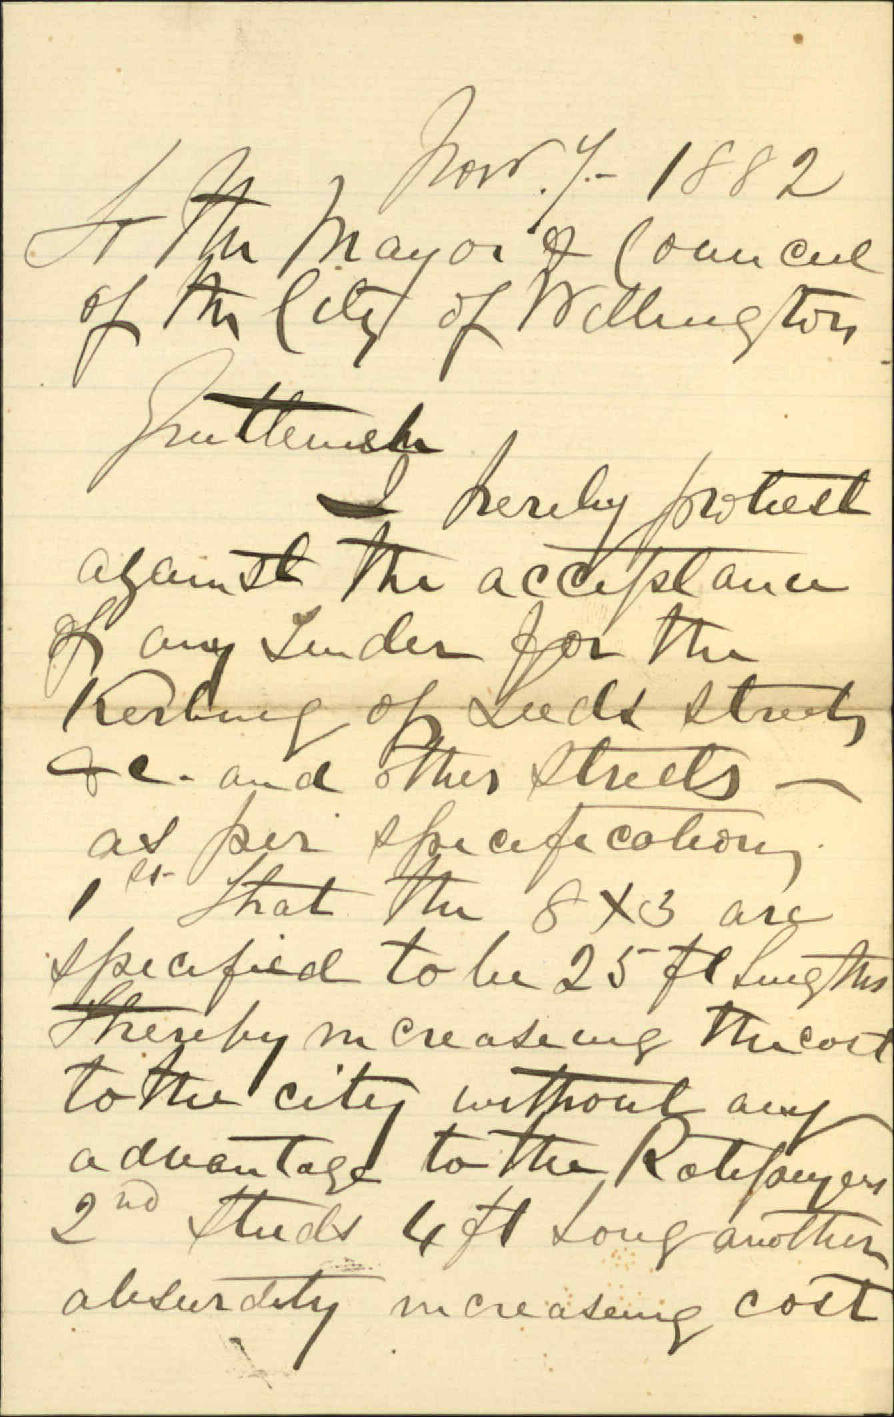 Nov. 7.- 1882
To the Mayor & Council
of the City of Wellington
Gentlemen
I hereby protest
against the acceptance
of any tender for the
Kerbing of Leeds street
&c. and other streets —
as per specification,
1st That the 8 X 3 are
specified to be 25 ft lengths
thereby increasing the cost
to the city without any
advantage to the Ratepayers
2nd Studs 4 ft long another
absurdity increasing cost